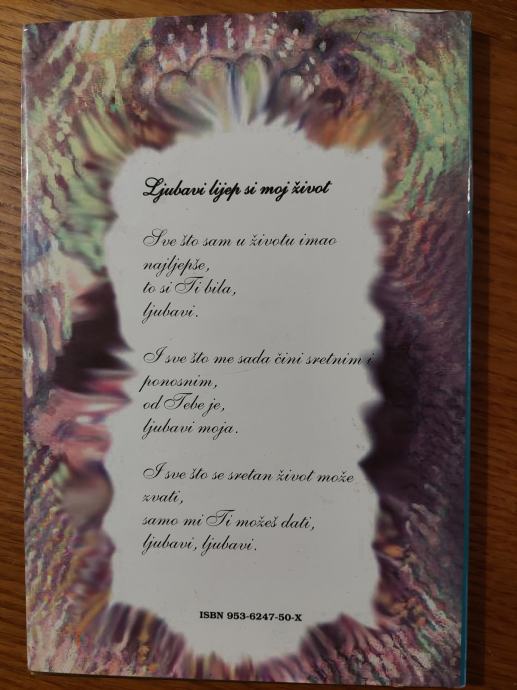 Ljubavi lijep si moj život
Sve što sam u životu imao
najljepše,
to si Ti bila,
ljubavi.
I sve što me sada čini sretnim i
ponosnim,
od Tebe je,
ljubavi moja.
I sve što se sretan život može
zvati,
samo mi Ti možeš dati,
ljubavi, ljubavi.
ISBN 953-6247-50-X